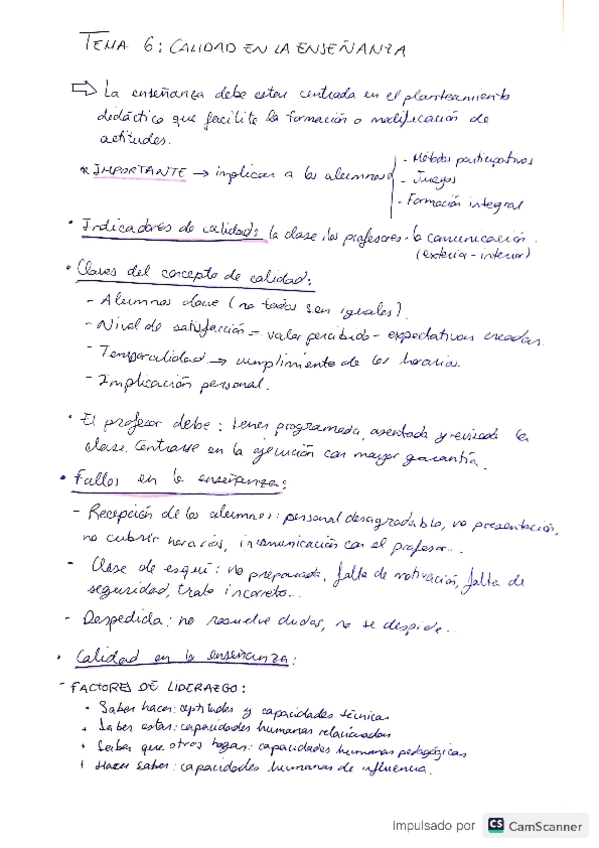 TEMA 6: CALIDAD EN LA ENSEÑANZA
⇨ La enseñanza debe estar centrada en el planteamiento
didáctico que facilite la formación o modificación de
actitudes.
* IMPORTANTE → implicar a los alumnos
- Métodos participativos
- Juegos
- Formación integral
• Indicadores de calidad: la clase, los profesores, la comunicación.
(exterior - interior)
• Claves del concepto de calidad:
- Alumnos clave (no todos son iguales).
- Nivel de satisfacción = valor percibido - expectativas creadas.
- Temporalidad → cumplimiento de los horarios.
- Implicación personal.
• El profesor debe: tener programada, asentada y revisada la
clase. Centrarse en la ejecución con mayor garantía.
• Fallos en la enseñanza:
- Recepción de los alumnos: personal desagradable, no presentación,
no cubrir horarios, incomunicación con el profesor...
- Clase de esquí: no preparada, falta de motivación, falta de
seguridad, trato incorrecto...
- Despedida: no resuelve dudas, no se despide...
• Calidad en la enseñanza:
- FACTORES DE LIDERAZGO:
• Saber hacer: aptitudes y capacidades técnicas
• Saber estar: capacidades humanas relacionadas
• Saber que otros hagan: capacidades humanas pedagógicas
• Hacer saber: capacidades humanas de influencia.
Impulsado por CS CamScanner